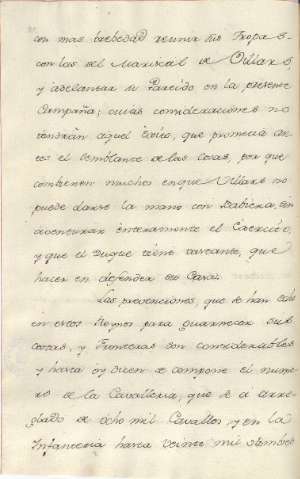 con mas brebedad reunir sus Tropas
con las del Mariscal de Villars
y adelantar su Partido en la presente
Campaña; cuias consideraciones no
tendrán aquel éxito, que prometía an-
tes el semblante de las cosas, por que
combienen muchos en que Villars no
puede darse la mano con Babiera, sin
aventurar enteramente el Exercito,
y que el Duque tiene bastante, que
hacer en defender su Casa.
Las prevenciones, que se han echo
en estos Reynos para guarnecer sus
costas, y Fronteras son considerables
y hasta oy dicen se compone el nume-
ro de la Cavalleria, que se a arre-
glado de ocho mil Cavallos, y en la
Infanteria hasta veinte mil hombres